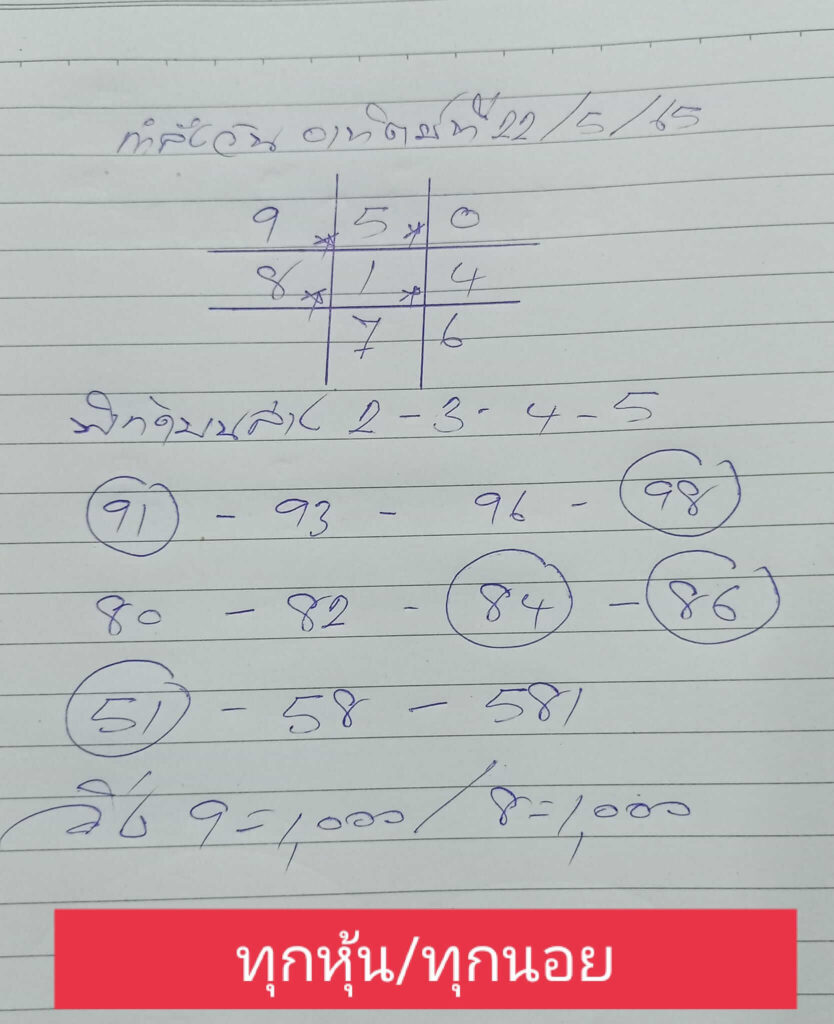 วัน อาทิตย์ที่ 22/5/65
9 5 0
8 1 4
7 6
บนล่าง 2 - 3 - 4 - 5
91 - 93 - 96 - 98
80 - 82 - 84 - 86
51 - 58 - 581
วิ่ง 9 = 1,000 / 8 = 1,000
ทุกหุ้น/ทุกนอย